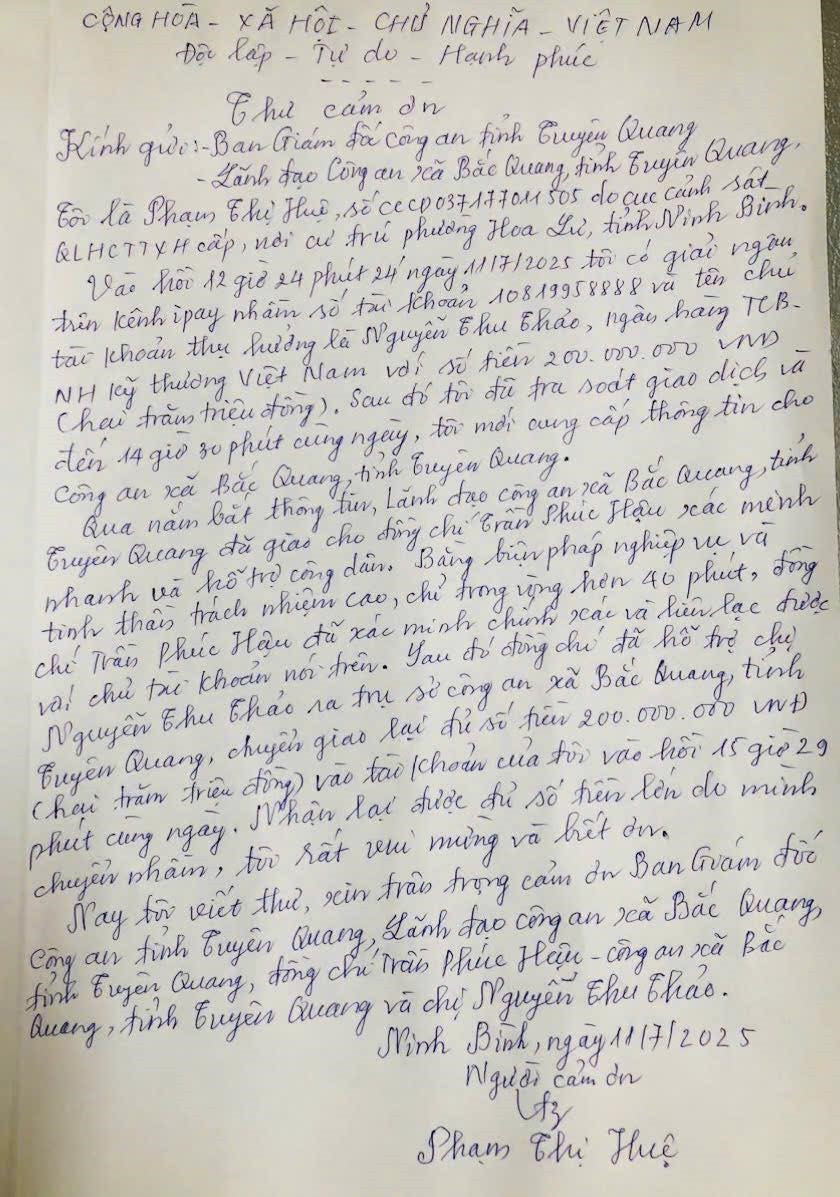 CỘNG HÒA - XÃ HỘI - CHỦ NGHĨA - VIỆT NAM
Độc lập - Tự do - Hạnh phúc
- - - - -
Thư cảm ơn
Kính gửi: - Ban Giám đốc công an tỉnh Tuyên Quang
- Lãnh đạo Công an xã Bắc Quang, tỉnh Tuyên Quang.
Tôi là Phạm Thị Huệ, số CCCD 037177011505 do cục cảnh sát
QLHCTTXH cấp, nơi cư trú phường Hoa Lư, tỉnh Ninh Bình.
Vào hồi 12 giờ 24 phút 24' ngày 11/7/2025 tôi có giải ngân
trên kênh ipay nhầm số tài khoản 10819958888 và tên chủ
tài khoản thụ hưởng là Nguyễn Thu Thảo, ngân hàng TCB-
NH Kỹ thương Việt Nam với số tiền 200.000.000 VNĐ
(hai trăm triệu đồng). Sau đó tôi đã tra soát giao dịch và
đến 14 giờ 30 phút cùng ngày, tôi mới cung cấp thông tin cho
công an xã Bắc Quang, tỉnh Tuyên Quang.
Qua nắm bắt thông tin, Lãnh đạo công an xã Bắc Quang, tỉnh
Tuyên Quang đã giao cho đồng chí Trần Phúc Hậu xác minh
nhanh và hỗ trợ công dân. Bằng biện pháp nghiệp vụ và
tinh thần trách nhiệm cao, chỉ trong vòng hơn 40 phút, đồng
chí Trần Phúc Hậu đã xác minh chính xác và liên lạc được
với chủ tài khoản nói trên. Sau đó đồng chí đã hỗ trợ chị
Nguyễn Thu Thảo ra trụ sở công an xã Bắc Quang, tỉnh
Tuyên Quang, chuyển giao lại đủ số tiền 200.000.000 VNĐ
(hai trăm triệu đồng) vào tài khoản của tôi vào hồi 15 giờ 29
phút cùng ngày. Nhận lại được đủ số tiền lớn do mình
chuyển nhầm, tôi rất vui mừng và biết ơn.
Nay tôi viết thư, xin trân trọng cảm ơn Ban Giám đốc
công an tỉnh Tuyên Quang, Lãnh đạo công an xã Bắc Quang,
tỉnh Tuyên Quang, đồng chí Trần Phúc Hậu - công an xã Bắc
Quang, tỉnh Tuyên Quang và chị Nguyễn Thu Thảo.
Ninh Bình, ngày 11/7/2025
Người cảm ơn
Phạm Thị Huệ